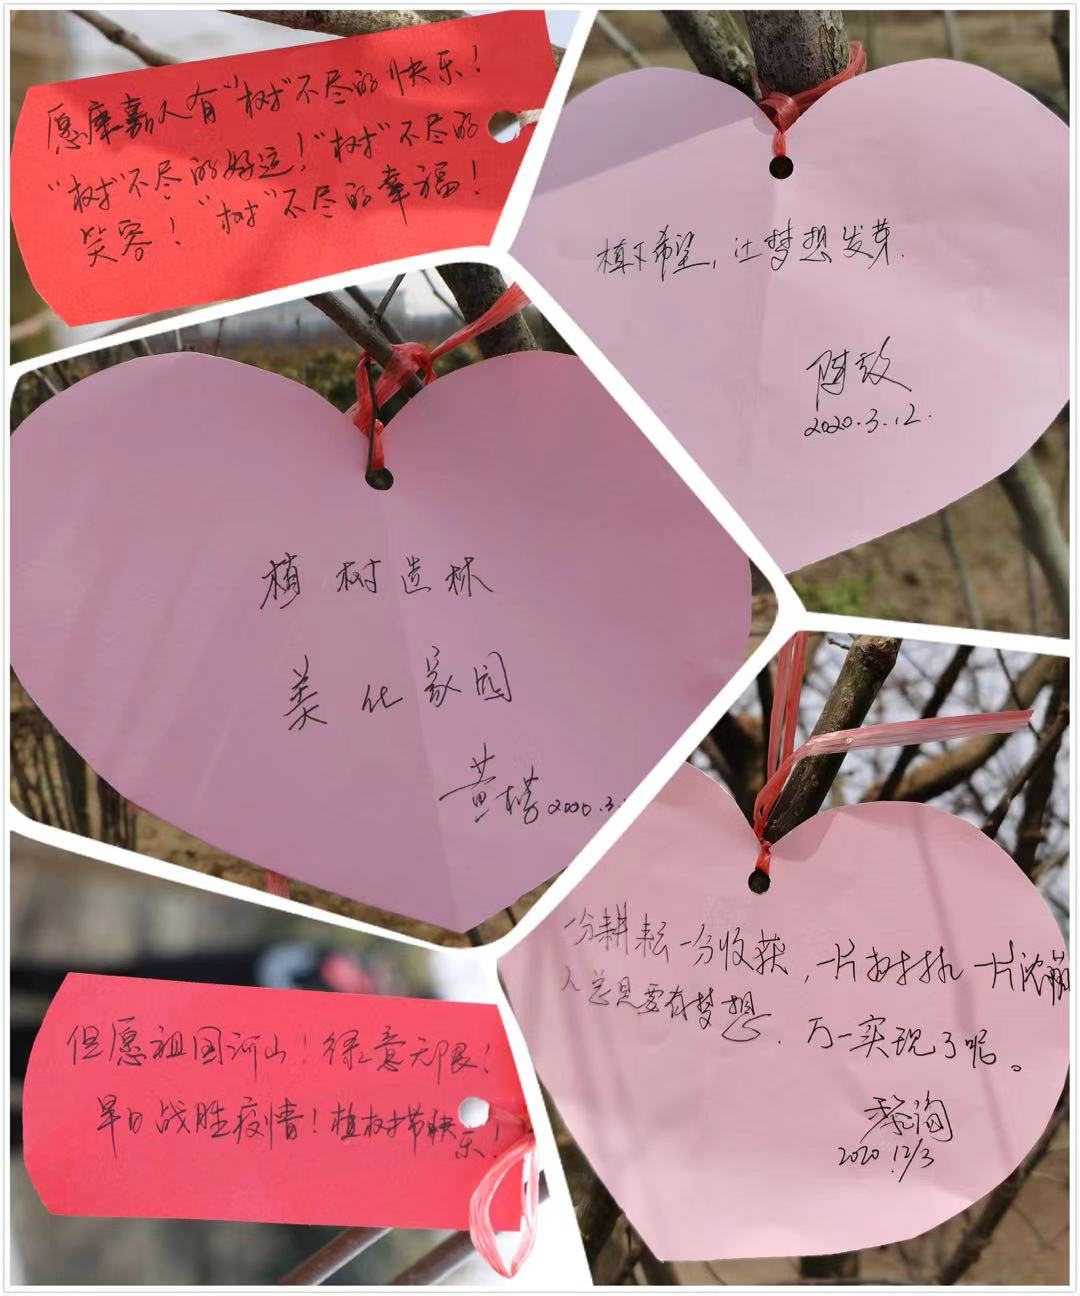 愿康嘉人有“树”不尽的快乐！
“树”不尽的好运！“树”不尽的
笑容！“树”不尽的幸福！
植下希望，让梦想发芽.
2020.3.12.
植树造林
美化家园
黄榜2020.3.
一分耕耘一分收获，一片树林一片浓荫
人总是要有梦想.万一实现了呢。
2020.12/3
但愿祖国河山！绿意无限！
早日战胜疫情！植树节快乐！